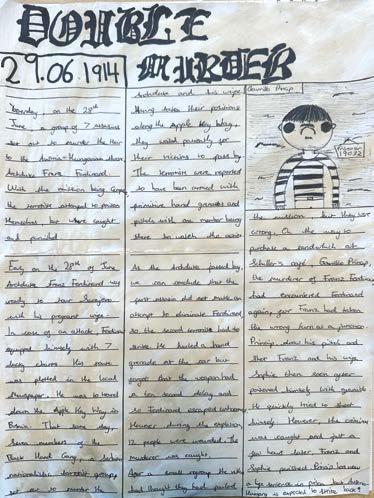 DOUBLE
MURDER
29.06.1914
Yesterday, on the 28th
June a group of 7 assassins
set out to murder the Heir
to the Austria-Hungarian throne
Archduke Franz Ferdinand.
With the mission being
the terrorists attempted to poison
themselves but were caught
and punished.
Early on the 28th of June,
Archduke Franz Ferdinand was
ready to tour Sarajevo
with his pregnant wife.
In case of an attack, Ferdinand
equipped himself with 7
lucky charms. His route
was plotted in the local
newspaper. He was to travel
down the Apple Key Way in
Bosnia. That same day,
seven members of the
Black Hand Gang, a Serbian
nationalistic terrorist group,
set out to murder the
Archduke and his wife.
Having taken their positions
along the Apple Key Way,
they waited patiently for
their victims to pass by.
The terrorists were reported
to have been armed with
primitive hand grenades and
pistols with one member being
there to watch the
As the Archduke passed by,
we can conclude that the
first assassin did not make an
attempt to eliminate Ferdinand,
so the second terrorist had to
strike. He hurled a hand
grenade at the car but
forgot that the weapon had
a ten second delay and
so Ferdinand escaped unharmed.
However during the explosion,
12 people were wounded. The
murderer was caught.
had thought they had
Gavrilo Princip
Prisoner
19072
the mission, but they were
wrong. On the way to
purchase a sandwich at
Schiller's café, Gavrilo Princip,
the murderer of Franz Ferdinand
had encountered Ferdinand
again for Franz had taken
the wrong turn at a junction.
Princip drew his pistol and
shot Franz and his wife
Sophie then soon after
poisoned himself with
He quickly tried to shoot
himself. However, the criminal
was caught and just a
few hours later Franz and
Sophie perished. Princip has now
a sentence in prison but Austria-
Hungary is expected to strike back!